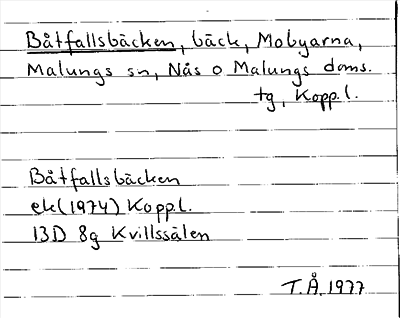 Båtfallsbäcken, bäck, Mobyarna,
Malungs sn, Nås o Malungs doms.
tg, Kopp.l.
Båtfallsbäcken
ek (1974) Kopp.l.
13D 8g Kvillssälen
T.Å. 1977